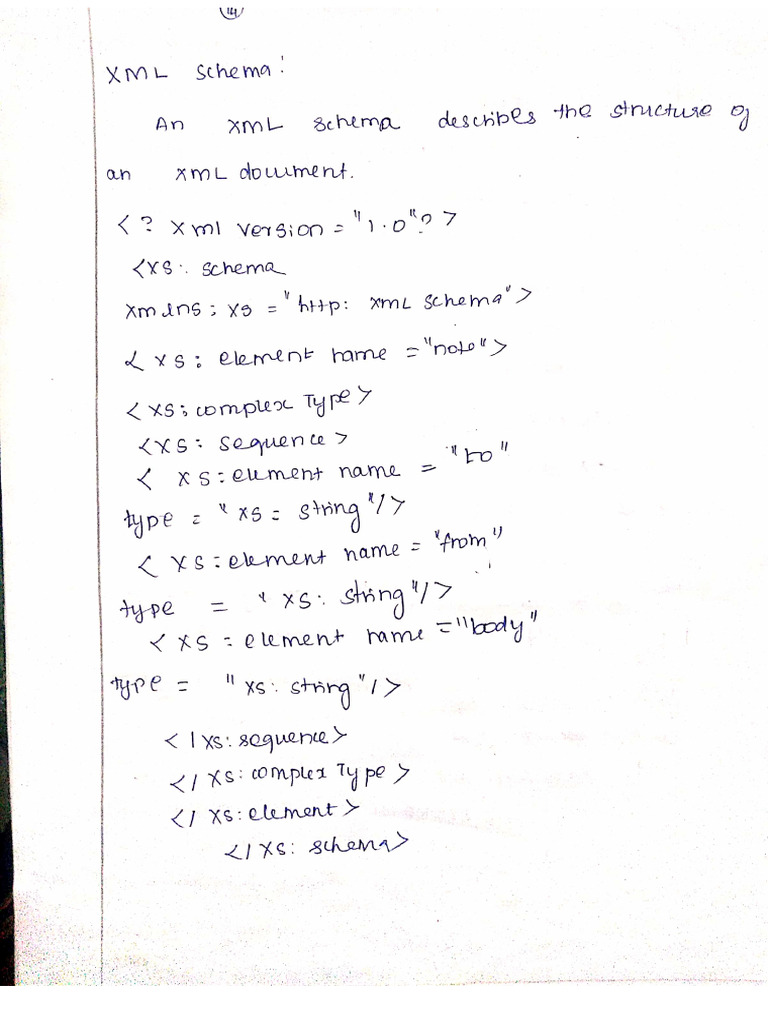 14
XML Schema:
An XML schema describes the structure of
an XML document.
< ? Xml version = "1.0"? >
<xs: schema
xmlns: xs = "http: XML Schema">
< xs: element name = "note">
<xs: complex Type>
<xs: sequence>
< xs: element name = "to"
type = "xs = string"/>
< xs: element name = "from"
type = "xs: string"/>
< xs = element name = "body"
type = "xs: string"/>
</xs: sequence>
</xs: complex Type>
</xs: element>
</xs: schema>